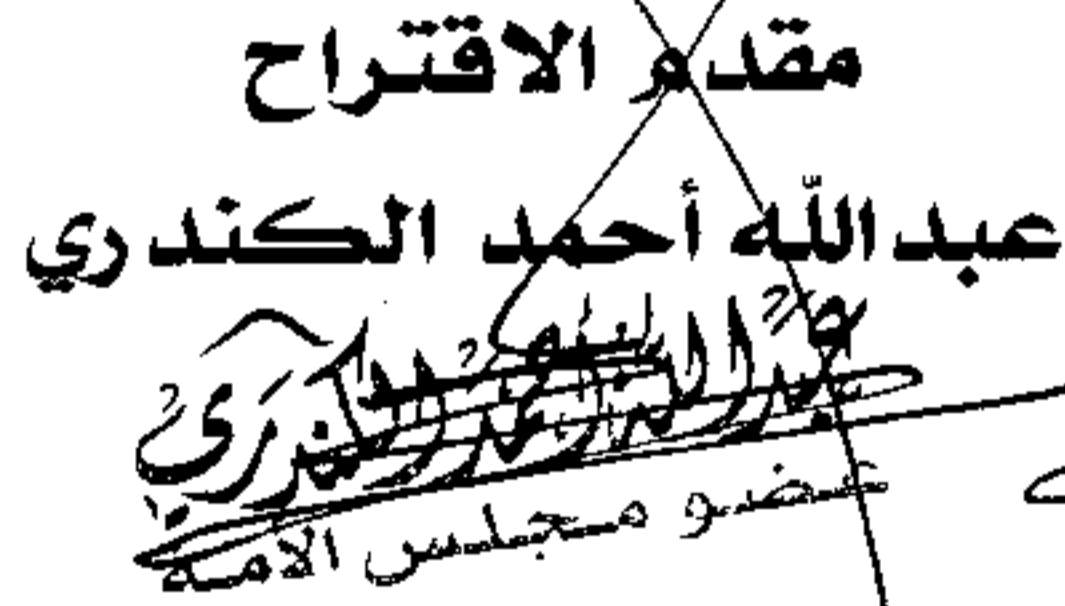 مقدم الاقتراح
عبدالله أحمد الكندري
عبدالله أحمد الكندري
عضو مجلس الأمة